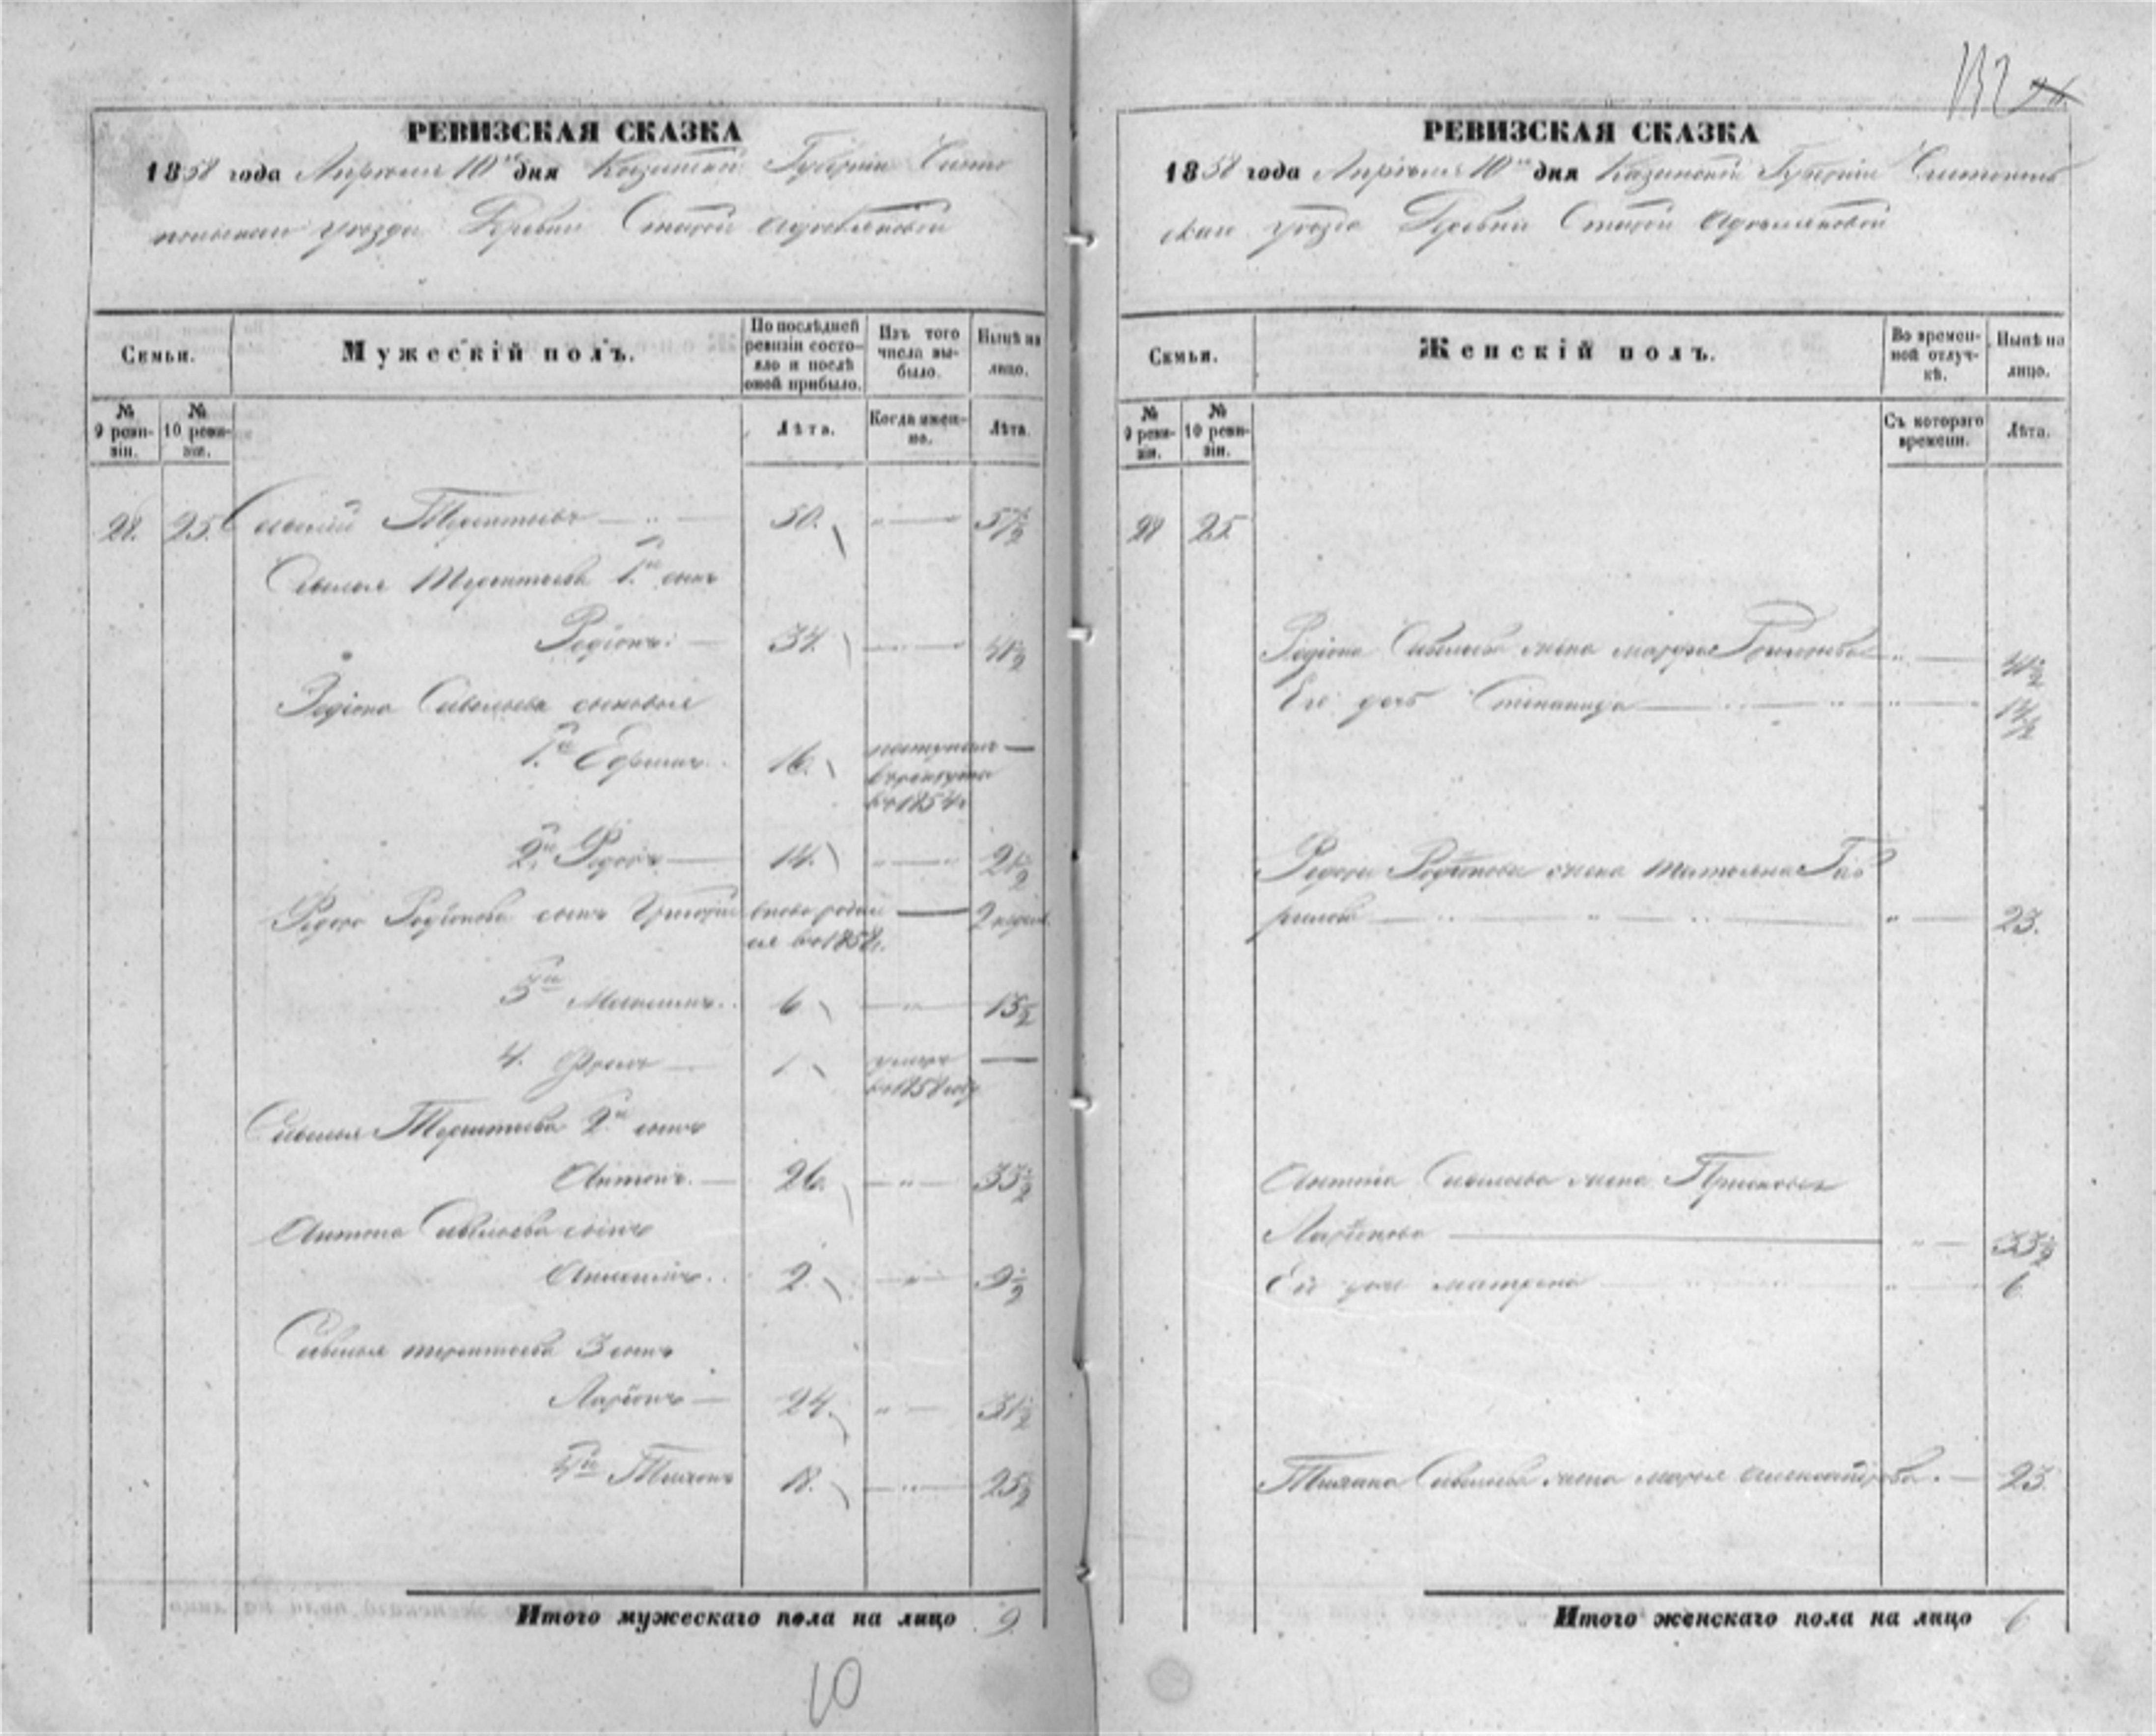 132
РЕВИЗСКАЯ СКАЗКА
1858 года Апреля 10го дня Казанской Губернии Чисто
польскаго уезда Деревни Старой
Семьи.
Мужескій полъ.
По послѣдней ревизіи состояло и послѣ оной прибыло.
Изъ того числа выбыло.
Нынѣ на лицо.
№ 9 ревизіи.
№ 10 ревизіи.
Лѣта.
Когда именно.
Лѣта.
28. 25. Савелий Терентьевъ 50. 57½
Савелья Терентьева 1й сынъ
Родіонъ 34. 41½
Родіона Савельева сыновья
1й Ефимъ 16. поступилъ
в рекруты
въ 1854
2й Федоръ 14. 21½
Федора Родіонова сынъ Григорий вновь родил 2 недел
ся въ 1858.
3й Максимъ 6 13½
4. Фролъ 1 умеръ
въ 1858 году
Савелья Терентьева 2й сынъ
Антонъ 26. 33½
Антона Савельева сынъ
2. 9½
Савелья Терентьева 3 сынъ
Ларіонъ 24. 31½
4й Тихонъ 18. 25½
Итого мужескаго пола на лицо 9.
10
РЕВИЗСКАЯ СКАЗКА
1858 года Апреля 10го дня Казанской Губерніи Чистополь
скаго уезда Деревни Старой
Семьи.
Женскій полъ.
Во временной отлучкѣ.
Нынѣ на лицо.
№ 9 ревизіи.
№ 10 ревизіи.
Съ котораго времени.
Лѣта.
28 25
Родіона Савельева жена Марфа 41½
Его дочь Степанида 14½
Федора Родіонова жена Татьяна Гав
рилова 23.
Антона Савельева жена Прасковья
Ларіонова 33½
Его дочь Матрена 6
Тихона Савельева жена Марья Александрова. 23.
Итого женскаго пола на лицо 6